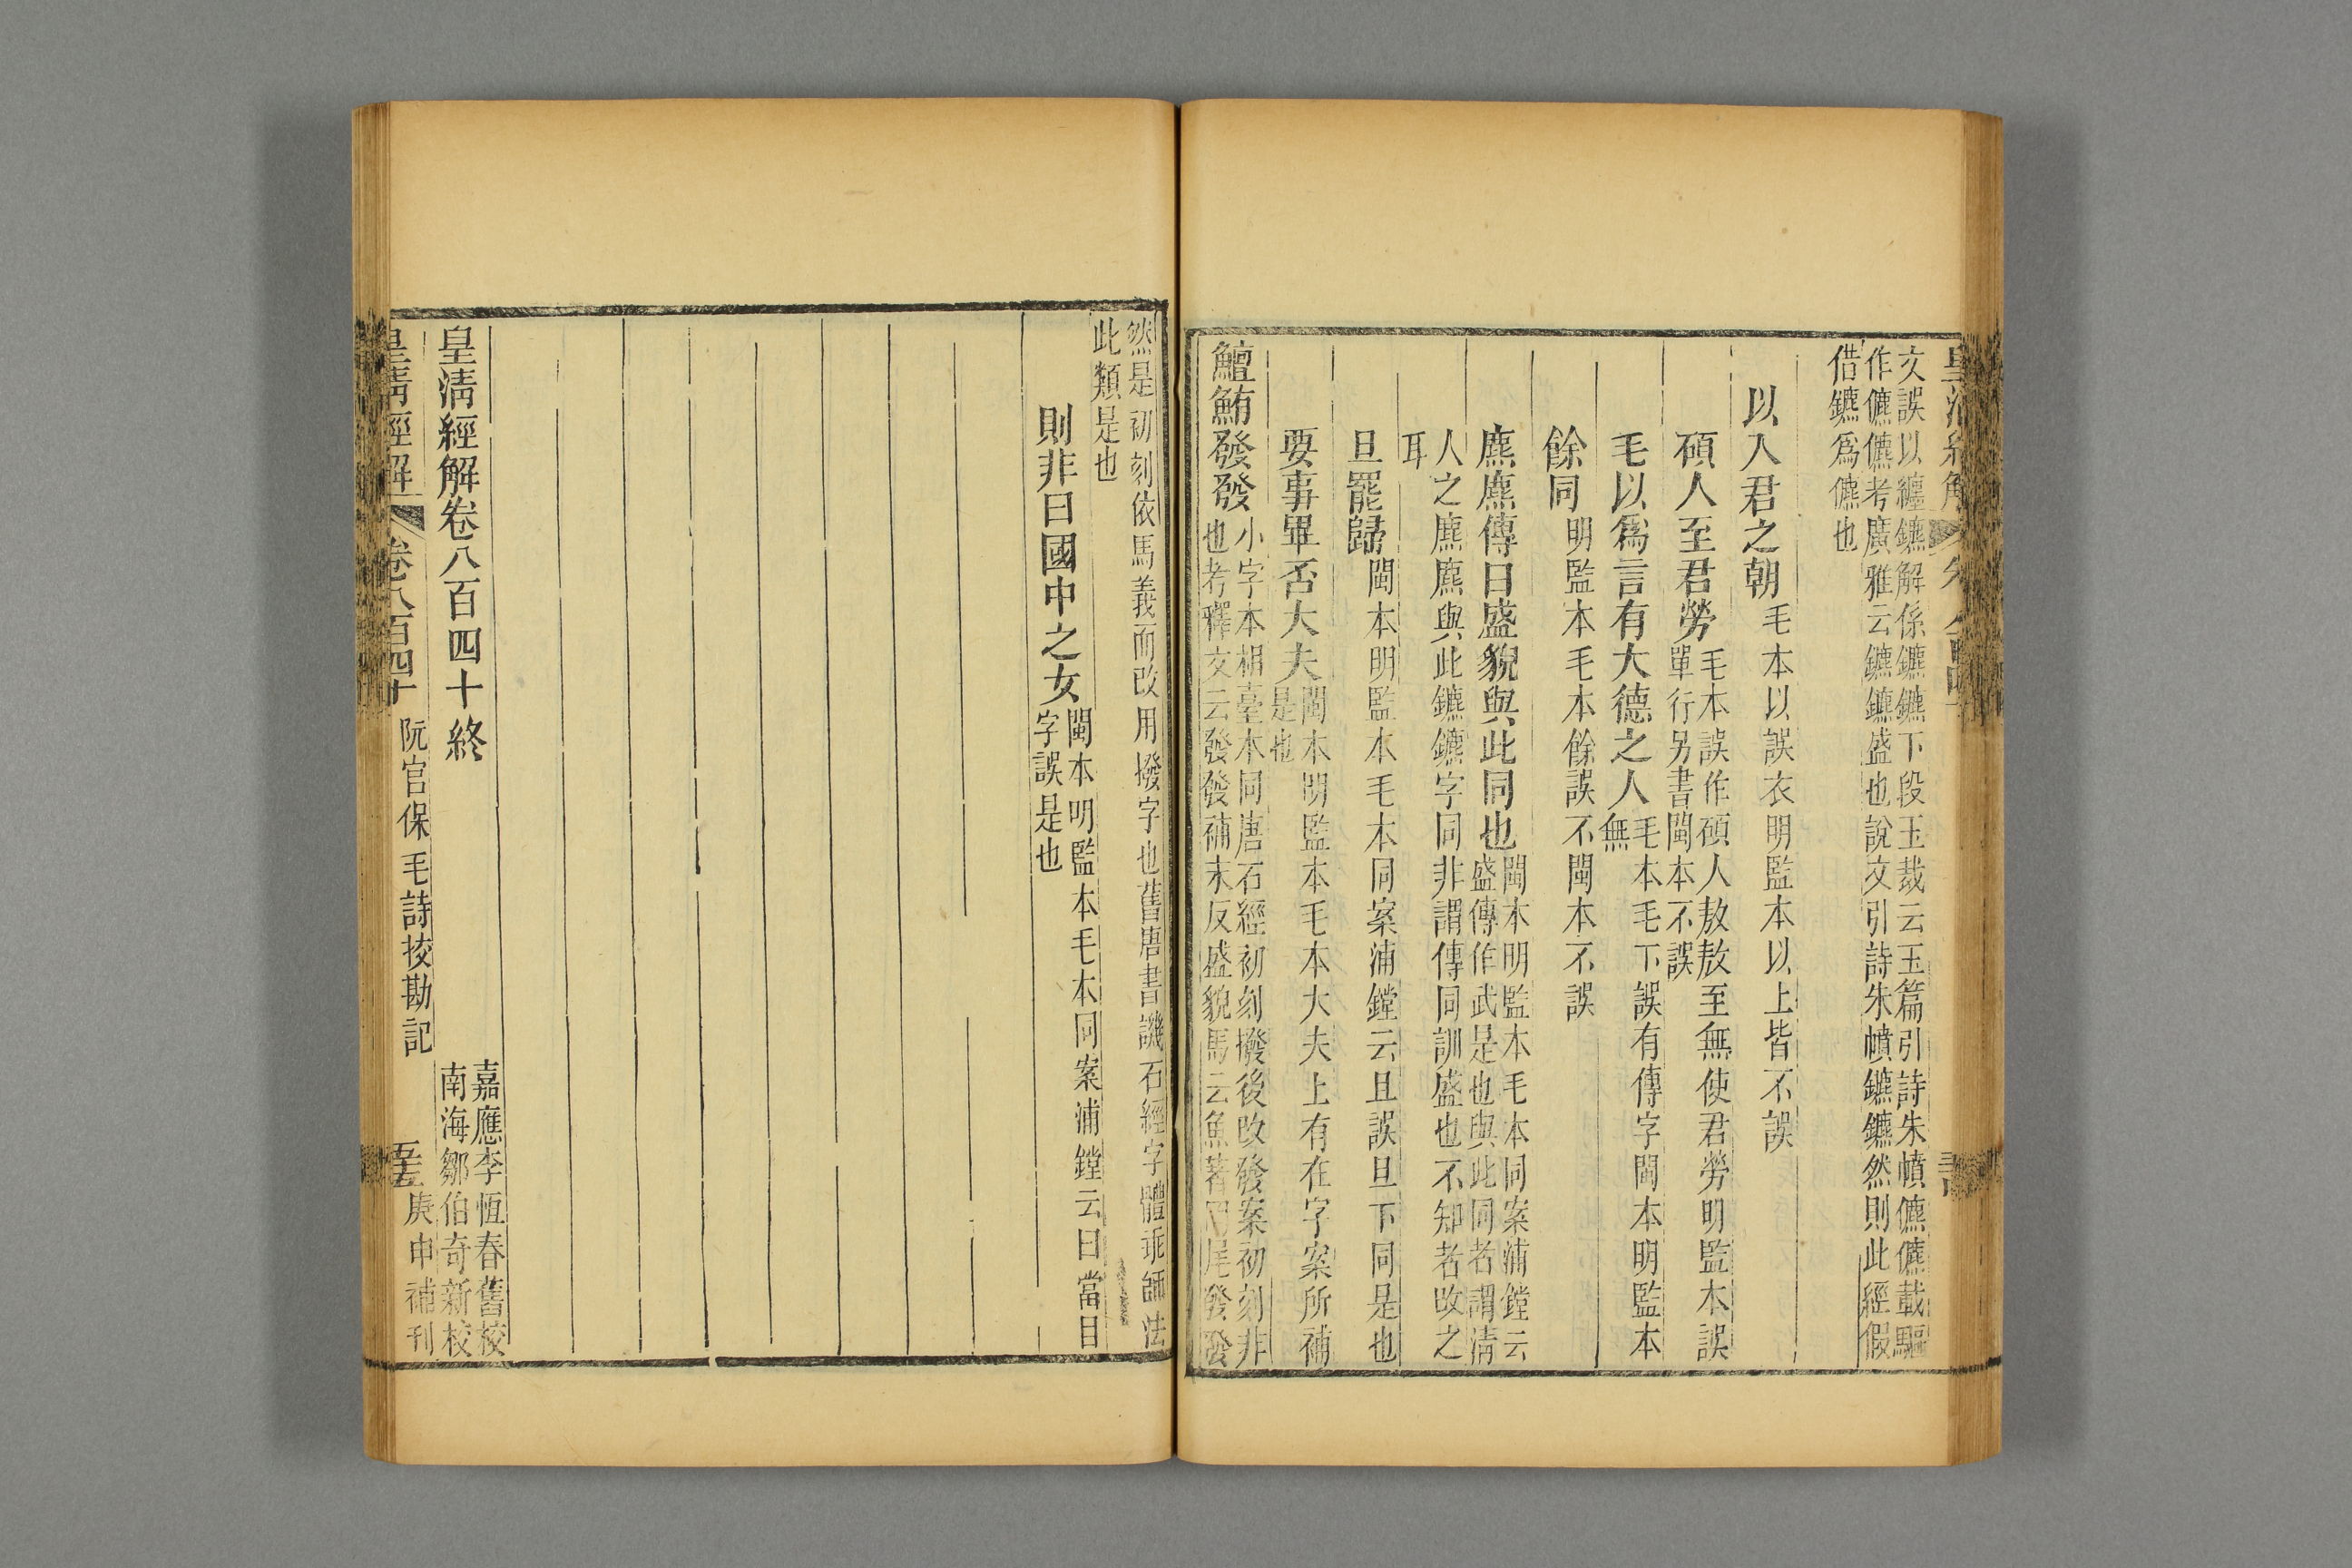 文誤以纏鑣解係鑣鑣下段玉裁云玉篇引詩朱幩儦儦載驅
作儦儦考廣雅云鑣鑣盛也說文引詩朱幩鑣鑣然則此經假
借鑣爲儦也
以入君之朝 毛本以誤衣明監本以上皆不誤
碩人至君勞 毛本誤作碩人敖敖至無使君勞明監本誤
單行另書閩本不誤
毛以爲言有大德之人 毛本毛下誤有傳字閩本明監本
無
餘同 明監本毛本餘誤不閩本不誤
麃麃傳曰盛貌與此同也 閩本明監本毛本同案浦鏜云
盛傳作武是也與此同者謂淸
人之麃麃與此鑣鑣字同非謂傳同訓盛也不知者改之
耳
旦罷歸 閩本明監本毛本同案浦鏜云且誤旦下同是也
要事畢否大夫 閩本明監本毛本大夫上有在字案所補
是也
鱣鮪發發 小字本相臺本同唐石經初刻撥後改發案初刻非
也考釋文云發發補末反盛貌馬云魚著罔尾發發
然是初刻依馬義而改用撥字也舊唐書譏石經字體乖師法
此類是也
則非曰國中之女 閩本明監本毛本同案浦鏜云曰當目
字誤是也
皇淸經解卷八百四十終
嘉應李恆春舊校
南海鄒伯奇新校
皇淸經解 卷八百四十 阮宮保毛詩挍勘記 庚申補刊